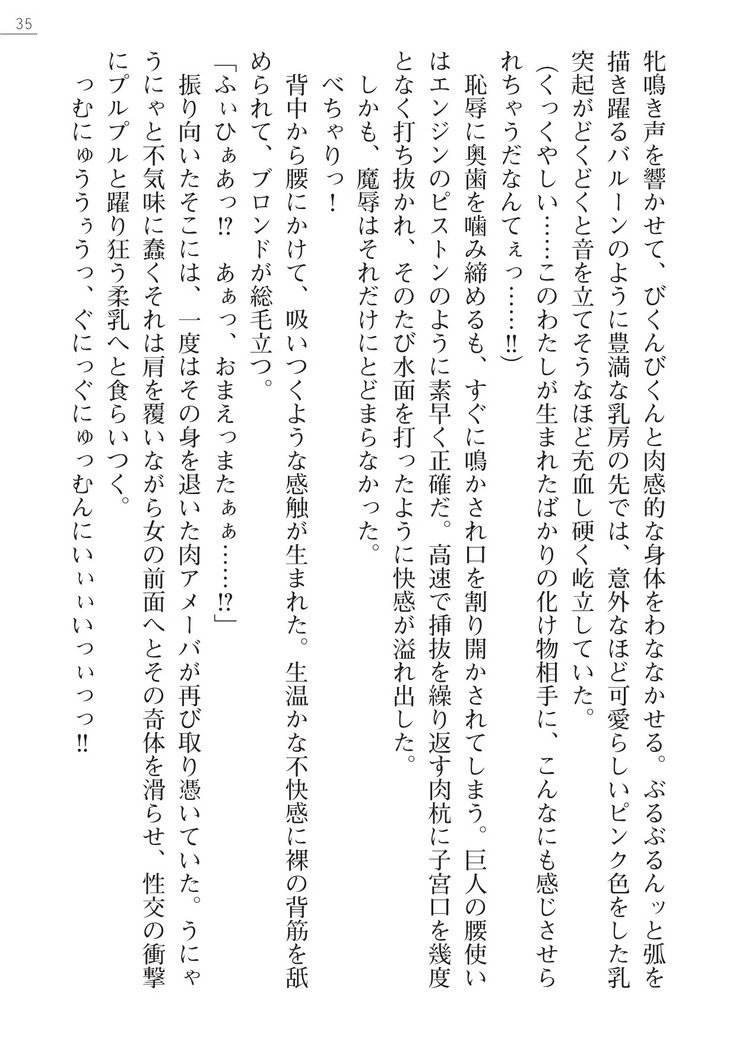 35
牝鳴き声を響かせて、びくんびくんと肉感的な身体をわななかせる。ぶるぶるんッと弧を
描き躍るバルーンのように豊満な乳房の先では、意外なほど可愛らしいピンク色をした乳
突起がどくどくと音を立てそうなほど充血し硬く屹立していた。
（くっくやしい……このわたしが生まれたばかりの化け物相手に、こんなにも感じさせら
れちゃうだなんてぇっ……‼）
恥辱に奥歯を噛み締めるも、すぐに鳴かされ口を割り開かされてしまう。巨人の腰使い
はエンジンのピストンのように素早く正確だ。高速で挿抜を繰り返す肉杭に子宮口を幾度
となく打ち抜かれ、そのたび水面を打ったように快感が溢れ出した。
しかも、魔辱はそれだけにとどまらなかった。
べちゃりっ！
背中から腰にかけて、吸いつくような感触が生まれた。生温かな不快感に裸の背筋を舐
められて、ブロンドが総毛立つ。
「ふぃひぁあっ⁉　あぁっ、おまえっまたぁぁ……⁉」
振り向いたそこには、一度はその身を退いた肉アメーバが再び取り憑いていた。うにゃ
うにゃと不気味に蠢くそれは肩を覆いながら女の前面へとその奇体を滑らせ、性交の衝撃
にプルプルと躍り狂う柔乳へと食らいつく。
っむにゅううぅうっ、ぐにっぐにゅっむんにいぃぃいっぃっっ‼